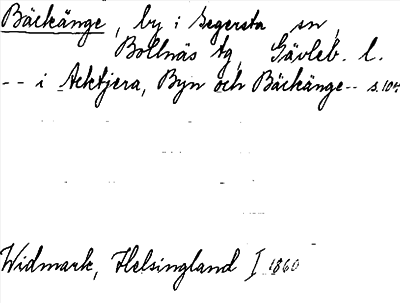 Bäckänge, by i Segersta sn,
Bollnäs tg, Gävleb. l.
-- i Acktjera, Byn och Bäckänge -- s. 104
Widmark, Helsingland I 1860